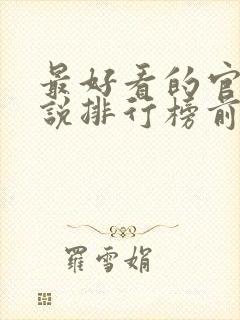 最好看的官
說排行榜前
羅雪娟